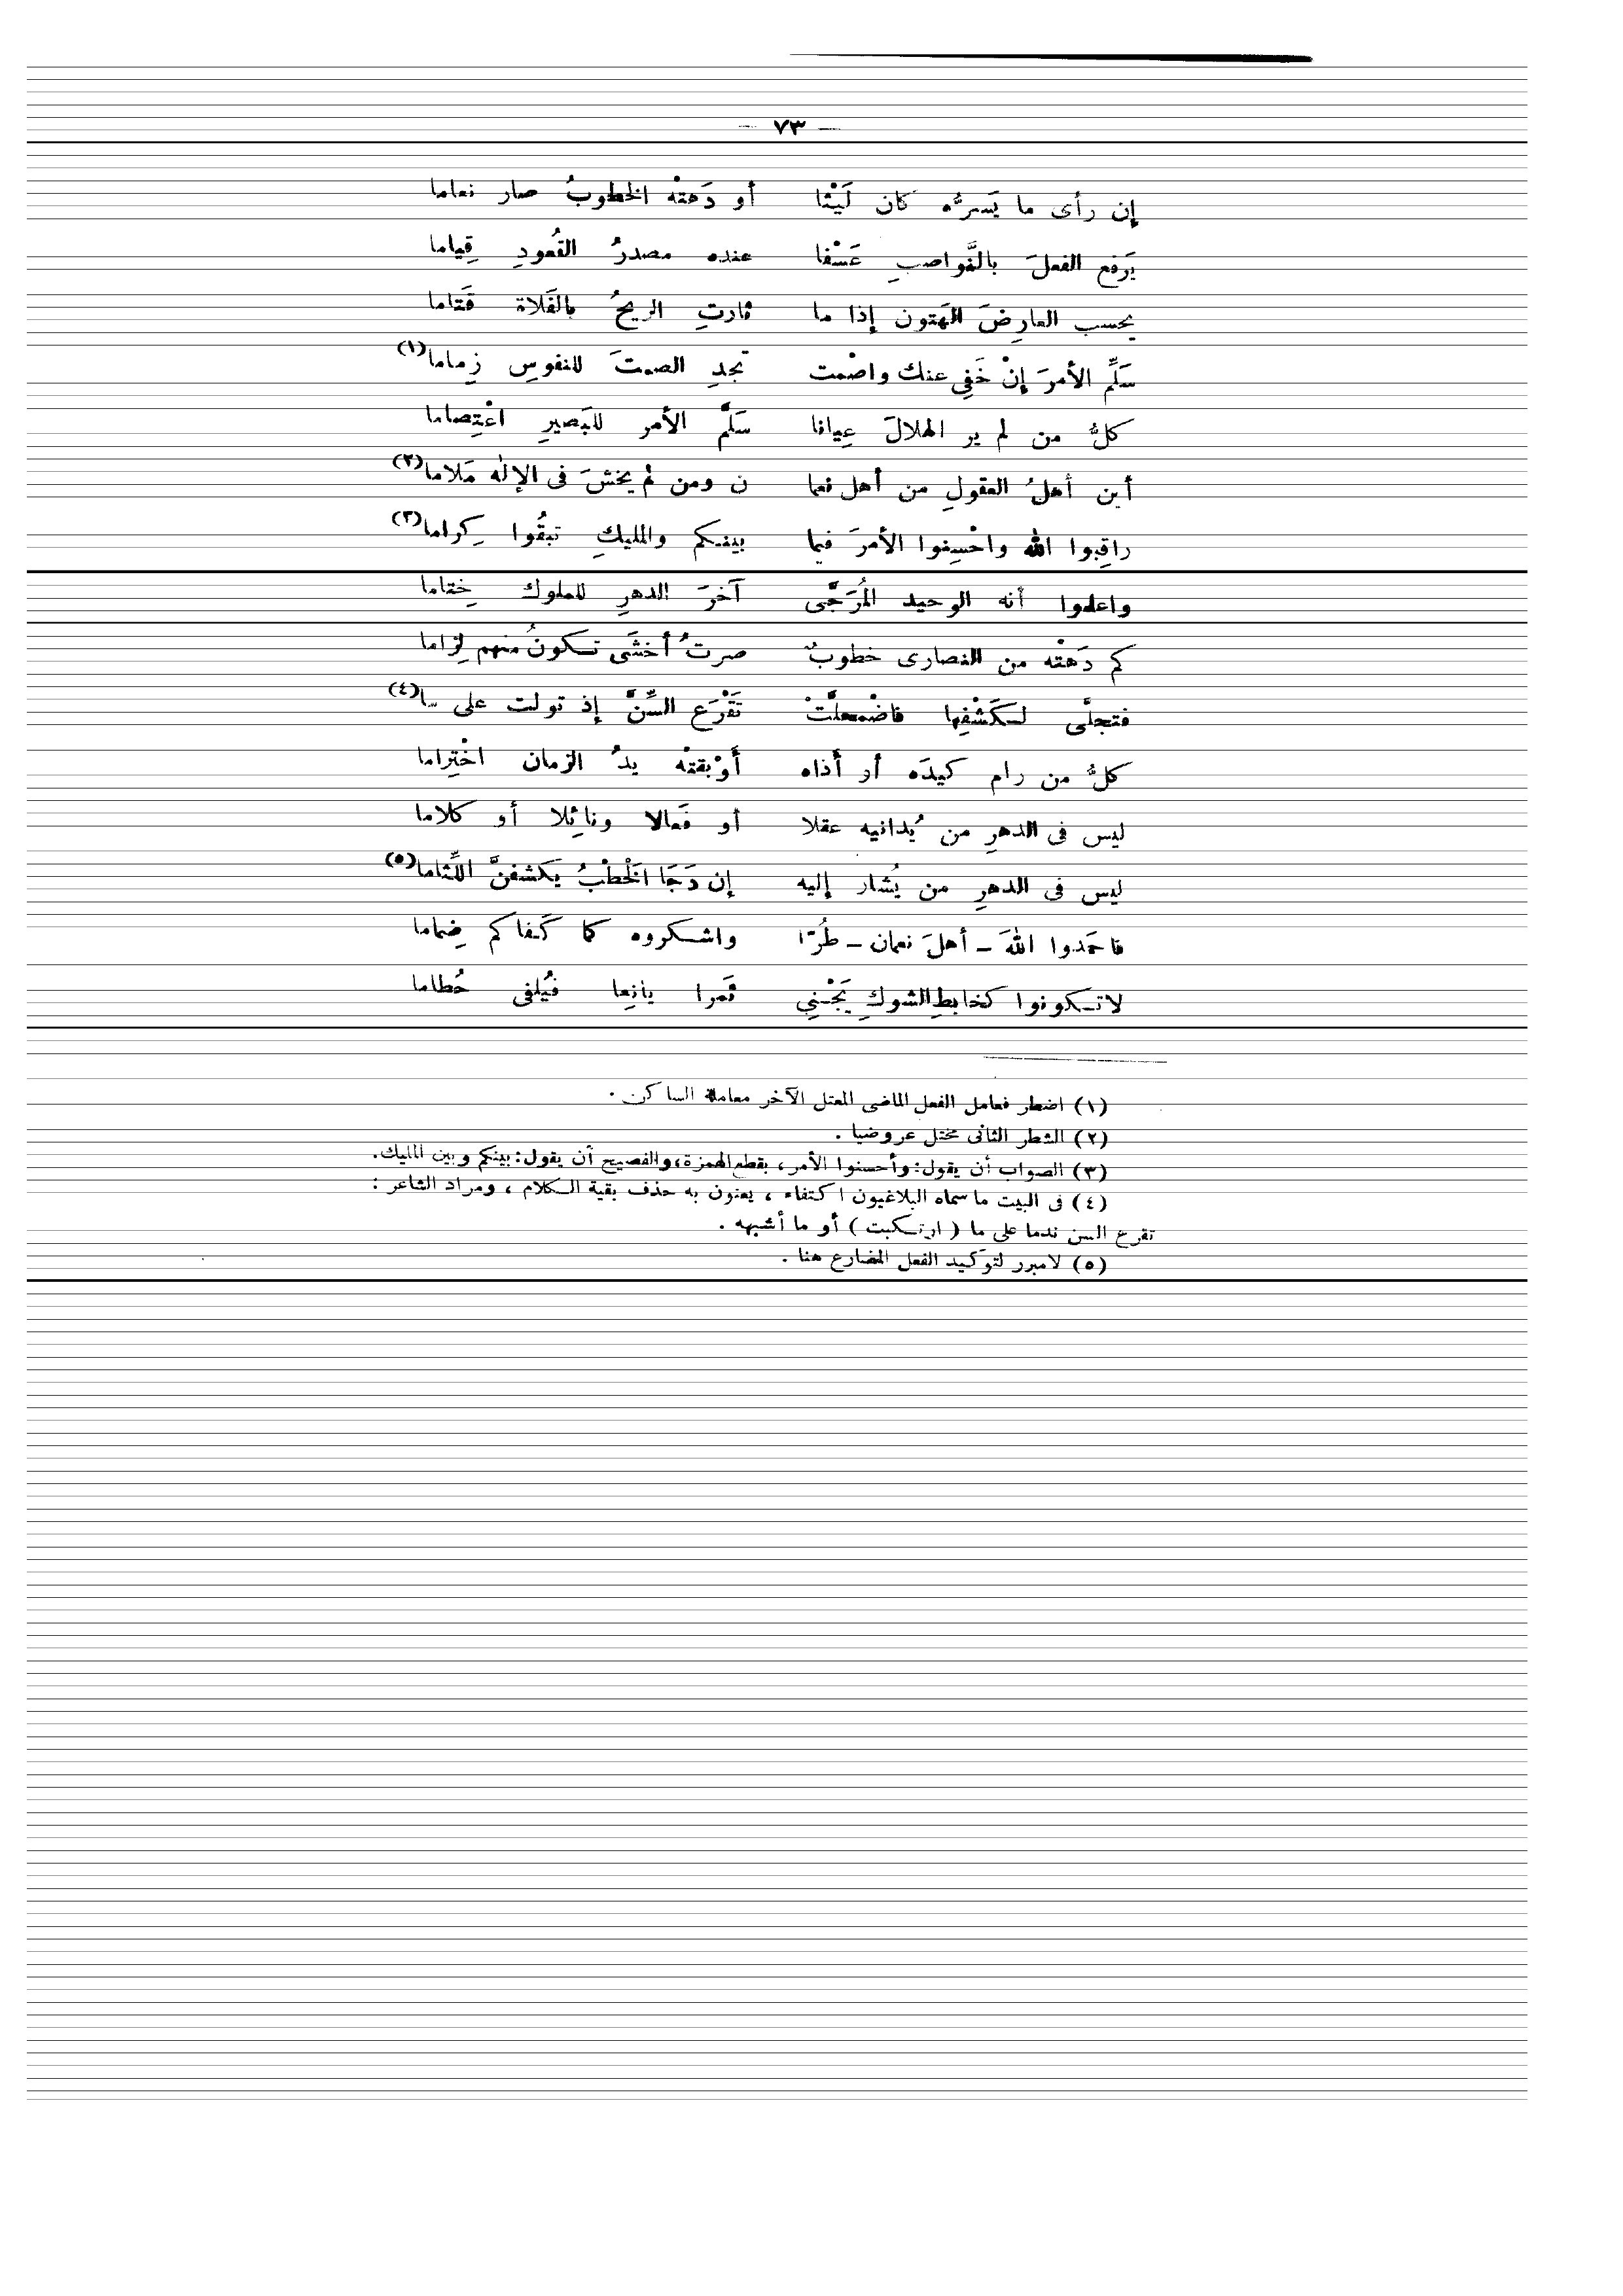 — ٧٣ —
إن رأى ما يَسرُّه كان لَيْثا أو دَهتْه الخطوبُ صار نعاما
يَرفع الفعلَ بالنَّواصبِ عَسْفا عنده مصدرُ القُعودِ قِياما
يحسب العارِضَ الهَتون إذا ما ثارتِ الريحُ بالفَلاة قَتاما
سَلِّم الأمرَ إنْ خَفِى عنك واصْمت تجدِ الصمتَ للنفوسِ زِماما(١)
كلُّ من لم ير الهلالَ عِيانا سَلَّم الأمر للبَصيرِ اعْتِصاما
أين أهلُ العقولِ من أهل نعما ن ومن لم يخشَ فى الإله مَلاما(٢)
راقِبوا الله واحْسِنوا الأمرَ فيما بينكم والمليكِ تبقُوا كِراما(٣)
واعلموا أنه الوحيد المُرَجَّى آخرَ الدهرِ للملوك خِتاما
كم دَهتْه من النصارى خطوبٌ صرتُ أخشَى تكونُ منهم لِزاما
فتجلَّى لكَشْفِها فاضْمحلَّتْ تَقْرَع السِّنَّ إذ تولت على ما(٤)
كلُّ من رام كيدَه أو أذاه أوْبقتْه يدُ الزمان اخْتِراما
ليس فى الدهرِ من يُدانيه عقلا أو فَعالا ونائِلا أو كلاما
ليس فى الدهرِ من يُشار إليه إن دَجَا الخَطْبُ يَكشفنَّ اللِّثاما(٥)
فاحمَدوا اللهَ – أهلَ نعمان – طُرّا واشكروه كما كَفاكم ضِماما
لاتكونوا كخابطِ الشوكِ يَجْنِي ثَمرا يانِعا فيُلفى حُطاما
(١) اضطر فعامل الفعل الماضى المعتل الآخر معاملة الساكن .
(٢) الشطر الثانى مختل عروضيا .
(٣) الصواب أن يقول: وأحسنوا الأمر، بقطع الهمزة، والفصيح أن يقول: بينكم وبين المليك.
(٤) فى البيت ما سماه البلاغيون اكتفاء ، يعنون به حذف بقية الكلام ، ومراد الشاعر :
تقرع السن ندما على ما ( ارتكبت ) أو ما أشبهه .
(٥) لامبرر لتوكيد الفعل المضارع هنا .